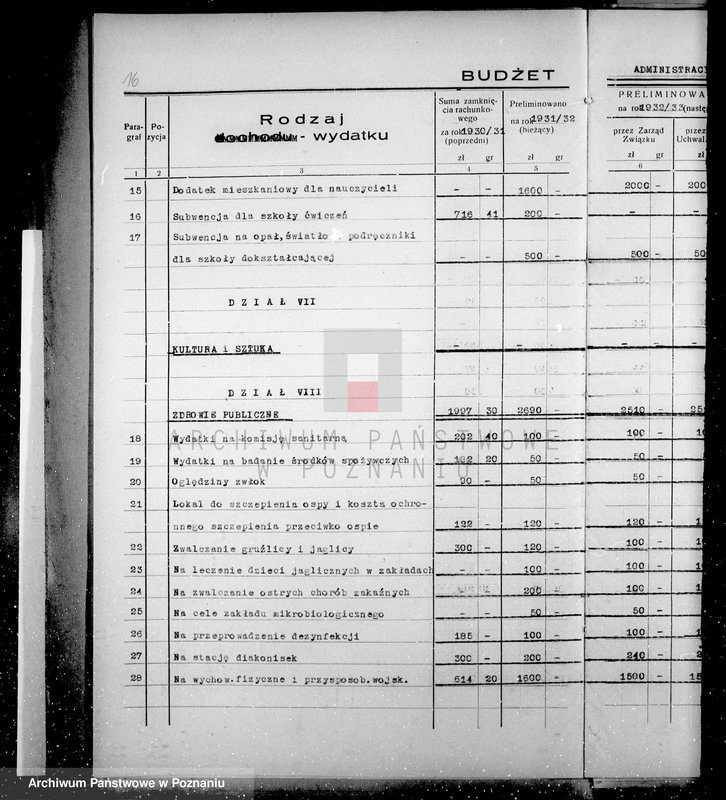 16
BUDŻET
ADMINISTRAC
Para-
graf
Po-
zycja
Rodzaj
dochodu - wydatku
Suma zamknię-
cia rachunko-
wego
za rok 1930/31
(poprzedni)
zł gr
Preliminowano
na rok 1931/32
(bieżący)
zł gr
PRELIMINOWA
na rok 1932/33 (następ
przez Zarząd
Związku
zł gr
przez
Uchwal.
zł
1 2 3 4 5 6
15 Dodatek mieszkaniowy dla nauczycieli - - 1600 - 2000 - 200
16 Subwencja dla szkoły ćwiczeń 716 41 200 - - - -
17 Subwencja na opał,światło podręczniki
dla szkoły dokształcającej - - 500 - 500 - 50
DZIAŁ VII
KULTURA i SZTUKA - - - - - - -
DZIAŁ VIII
ZDROWIE PUBLICZNE 1997 30 2690 - 2510 - 25
18 Wydatki na komisję sanitarną 202 40 100 - 100 - 10
19 Wydatki na badanie środków spożywczych 182 20 50 - 50 -
20 Oględziny zwłok 90 - 50 - 50 -
21 Lokal do szczepienia ospy i koszta ochro-
nnego szczepienia przeciwko ospie 122 - 120 - 120 - 1
22 Zwalczanie gruźlicy i jaglicy 300 - 120 - 100 - 10
23 Na leczenie dzieci jaglicznych w zakładach - - 100 - 100 - 10
24 Na zwalczanie ostrych chorób zakaźnych 200 - 100 - 10
25 Na cele zakładu mikrobiologicznego - - 50 - 50 -
26 Na przeprowadzenie dezynfekcji 185 - 100 - 100 - 1
27 Na stację diakonisek 300 - 200 - 240 - 2
28 Na wychow.fizyczne i przysposob.wojsk. 614 20 1600 - 1500 - 15
ARCHIWUM PAŃSTWOWE
W POZNANIU
Archiwum Państwowe w Poznaniu